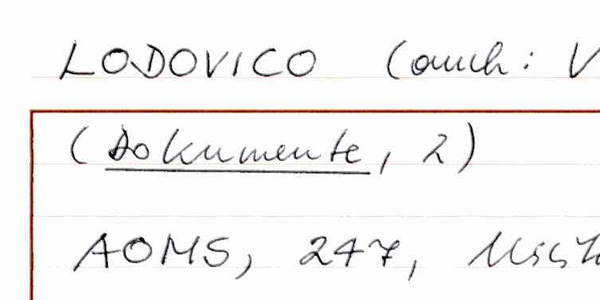 LODOVICO (auch: V
(Dokumente, 2)
AOMS, 247,